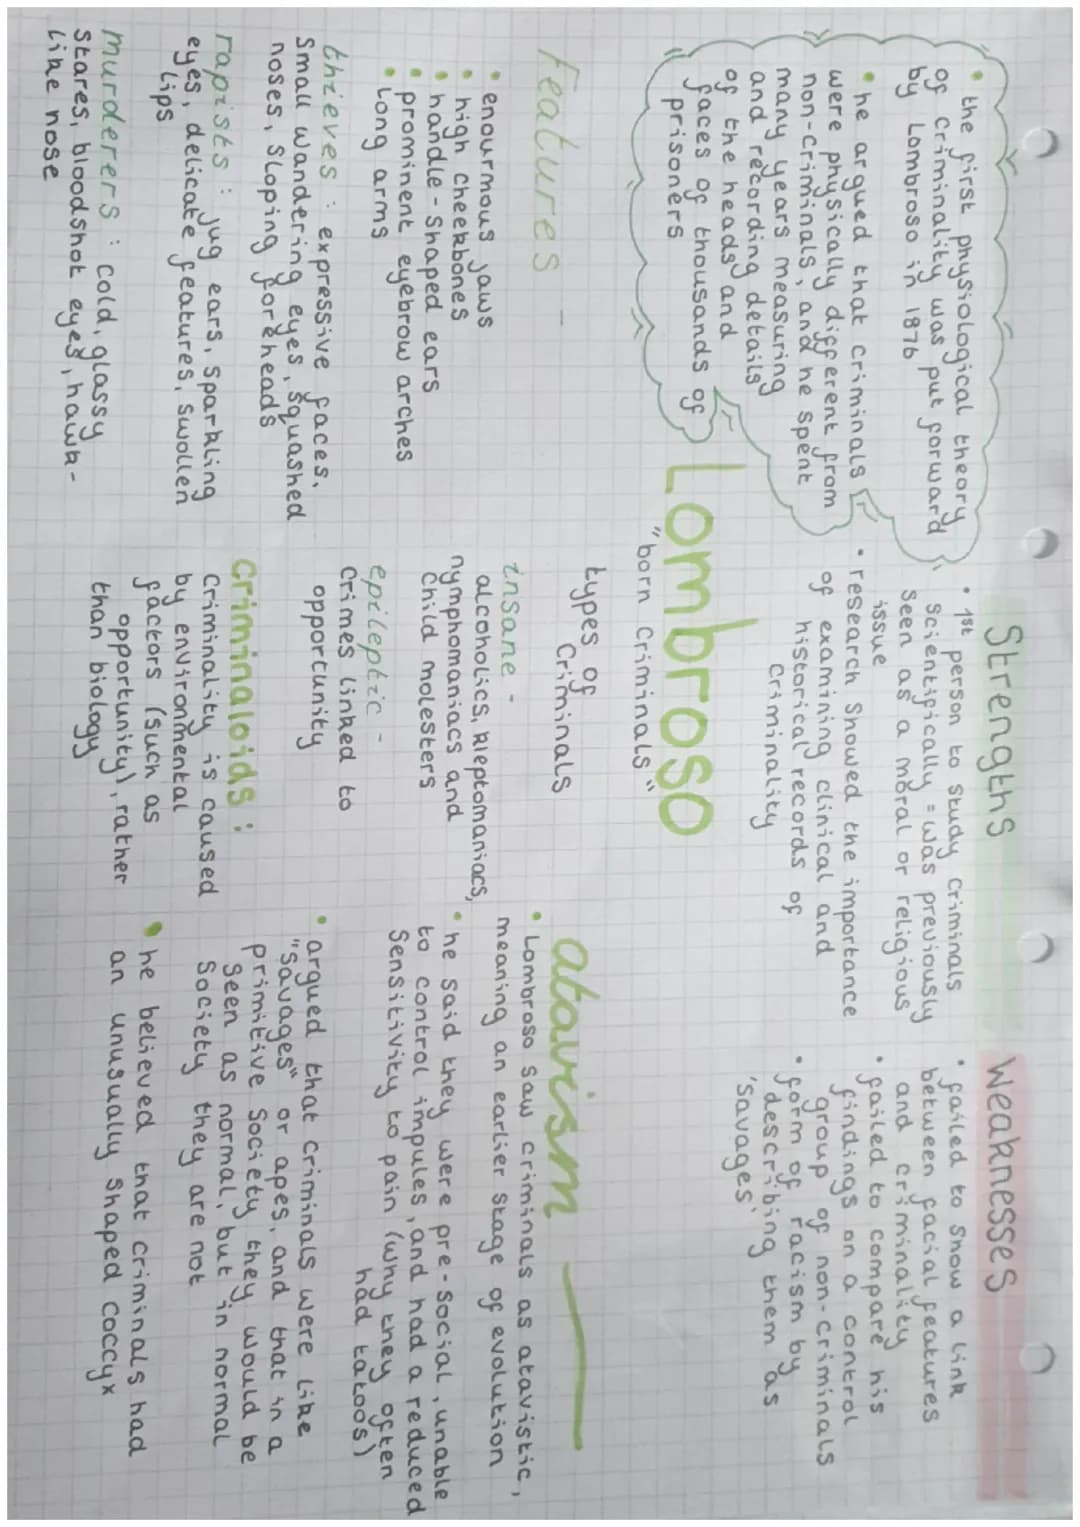 • the first physiological theory
of criminality was put forward
by Lombroso in 1876
• he argued that criminals
were physically different from
non-criminals, and he spent
many years measuring
and recording details
of the heads and
faces of thousands of
prisoners
Strengths
• 1st person to study criminals
scientifically = was previously
seen as a moral or religious
issue
• research showed the importance
of examining clinical and
historical records of
criminality
Weaknesses
• failed to show a link
between facial features
and criminality
• failed to compare his
findings on a control
group of non-criminals
• form of racism by
describing them as
'savages'
Lombroso
"born criminals"
Features -
• enourmous jaws
• high cheekbones
• handle-shaped ears
• prominent eyebrow arches
• Long arms
thieves : expressive faces,
small wandering eyes, squashed
noses, sloping foreheads
rapists : jug ears, sparkling
eyes, delicate features, swollen
lips
murderers : cold, glassy
stares, bloodshot eyes, hawk-
like nose
types of
criminals
insane -
alcoholics, kleptomaniacs,
nymphomaniacs and
child molesters
epileptic -
crimes linked to
opportunity
Criminaloids :
criminality is caused
by environmental
factors (such as
opportunity), rather
than biology
atavism
• Lombroso saw criminals as atavistic,
meaning an earlier stage of evolution
• he said they were pre-social, unable
to control impules, and had a reduced
sensitivity to pain (why they often
had tatoos)
• argued that criminals were like
"savages" or apes, and that in a
primitive society they would be
seen as normal, but in normal
society they are not
• he believed that criminals had
an unusually shaped coccyx